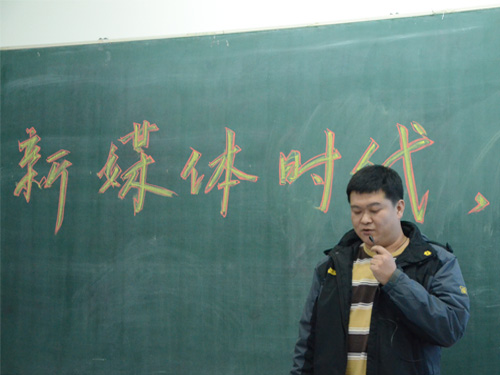 新媒体时代，